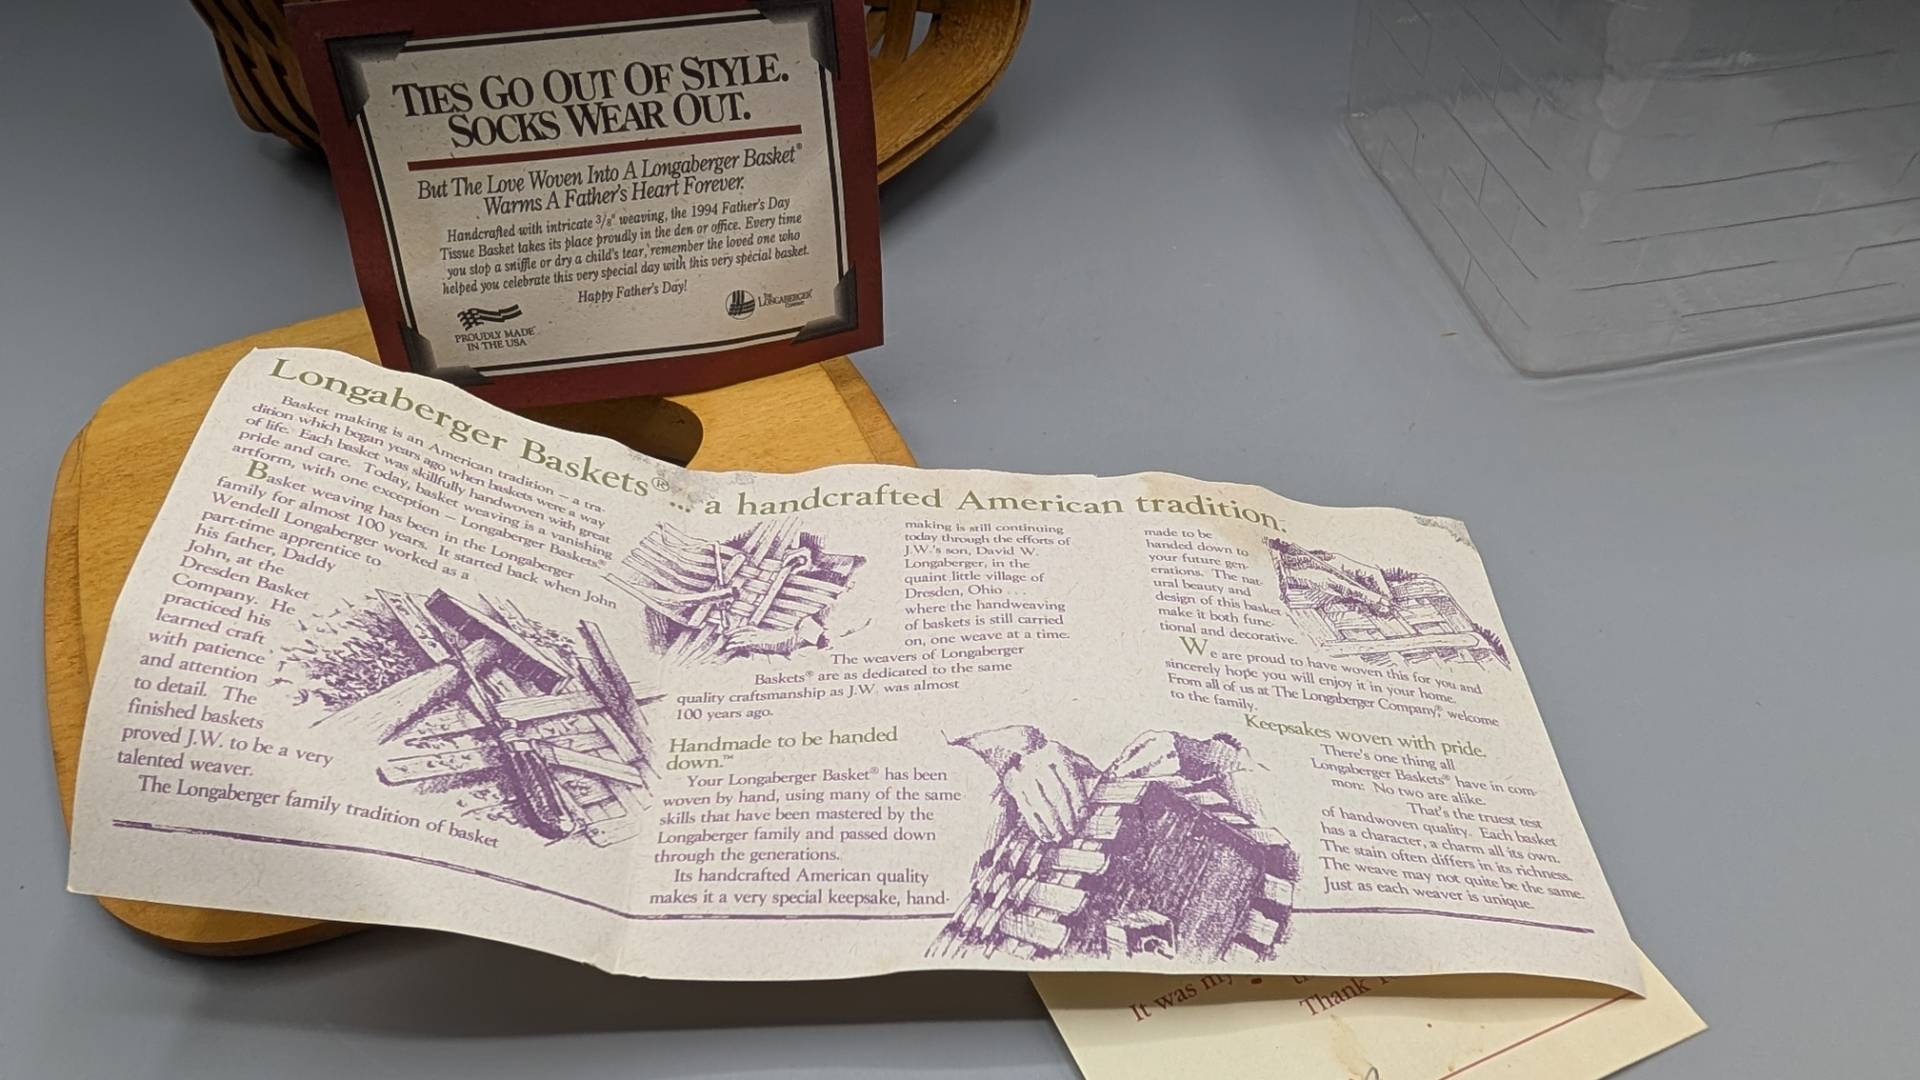 TIES GO OUT OF STYLE.
SOCKS WEAR OUT.
But The Love Woven Into A Longaberger Basket®
Warms A Father's Heart Forever.
Handcrafted with intricate 3/8" weaving, the 1994 Father's Day
Tissue Basket takes its place proudly in the den or office. Every time
you stop a sniffle or dry a child's tear, remember the loved one who
helped you celebrate this very special day with this very special basket.
Happy Father's Day!
PROUDLY MADE
IN THE USA
THE
LONGABERGER
COMPANY
Longaberger Baskets®... a handcrafted American tradition.
Basket making is an American tradition – a tra-
dition which began years ago when baskets were a way
of life. Each basket was skillfully handwoven with great
pride and care. Today, basket weaving is a vanishing
artform, with one exception – Longaberger Baskets.®
Basket weaving has been in the Longaberger
family for almost 100 years. It started back when John
Wendell Longaberger worked as a
part-time apprentice to
his father, Daddy
John, at the
Dresden Basket
Company. He
practiced his
learned craft
with patience
and attention
to detail. The
finished baskets
proved J.W. to be a very
talented weaver.
The Longaberger family tradition of basket
making is still continuing
today through the efforts of
J.W.'s son, David W.
Longaberger, in the
quaint little village of
Dresden, Ohio . . .
where the handweaving
of baskets is still carried
on, one weave at a time.
The weavers of Longaberger
Baskets® are as dedicated to the same
quality craftsmanship as J.W. was almost
100 years ago.
Handmade to be handed
down.™
Your Longaberger Basket® has been
woven by hand, using many of the same
skills that have been mastered by the
Longaberger family and passed down
through the generations.
Its handcrafted American quality
makes it a very special keepsake, hand-
made to be
handed down to
your future gen-
erations. The nat-
ural beauty and
design of this basket
make it both func-
tional and decorative.
We are proud to have woven this for you and
sincerely hope you will enjoy it in your home.
From all of us at The Longaberger Company®, welcome
to the family.
Keepsakes woven with pride.
There's one thing all
Longaberger Baskets® have in com-
mon: No two are alike.
That's the truest test
of handwoven quality. Each basket
has a character, a charm all its own.
The stain often differs in its richness.
The weave may not quite be the same.
Just as each weaver is unique.
It was my
Thank